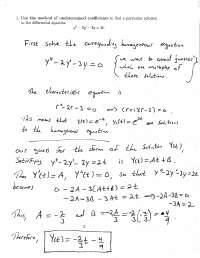 1. Use the method of undetermined coefficients to find a particular solution
to the differential equation
y'' − 2y' − 3y = 2t
First solve the corresponding homogeneous equation
y'' − 2y' − 3y = 0 {we want to avoid guesses
which are multiples of
these solutions.
The characteristic equation is
r² − 2r − 3 = 0 ⟹ (r+1)(r−3) = 0.
This means that y₁(t) = e^-t, y₂(t) = e^3t are solutions
to the homogeneous equation.
Our guess for the form of the solution Y(t),
Satisfying y'' − 2y' − 3y = 2t is Y(t) = At + B.
Then Y'(t) = A, Y''(t) = 0, so that y'' − 2y' − 3y = 2t
becomes 0 − 2A − 3(At+B) = 2t
−2A − 3B − 3At = 2t ⟹ −2A − 3B = 0
−3A = 2.
Thus, A = −2/3 and B = −2A/3 = −2/3(−2/3) =
Therefore, Y(t) = −2/3 t − 4/9